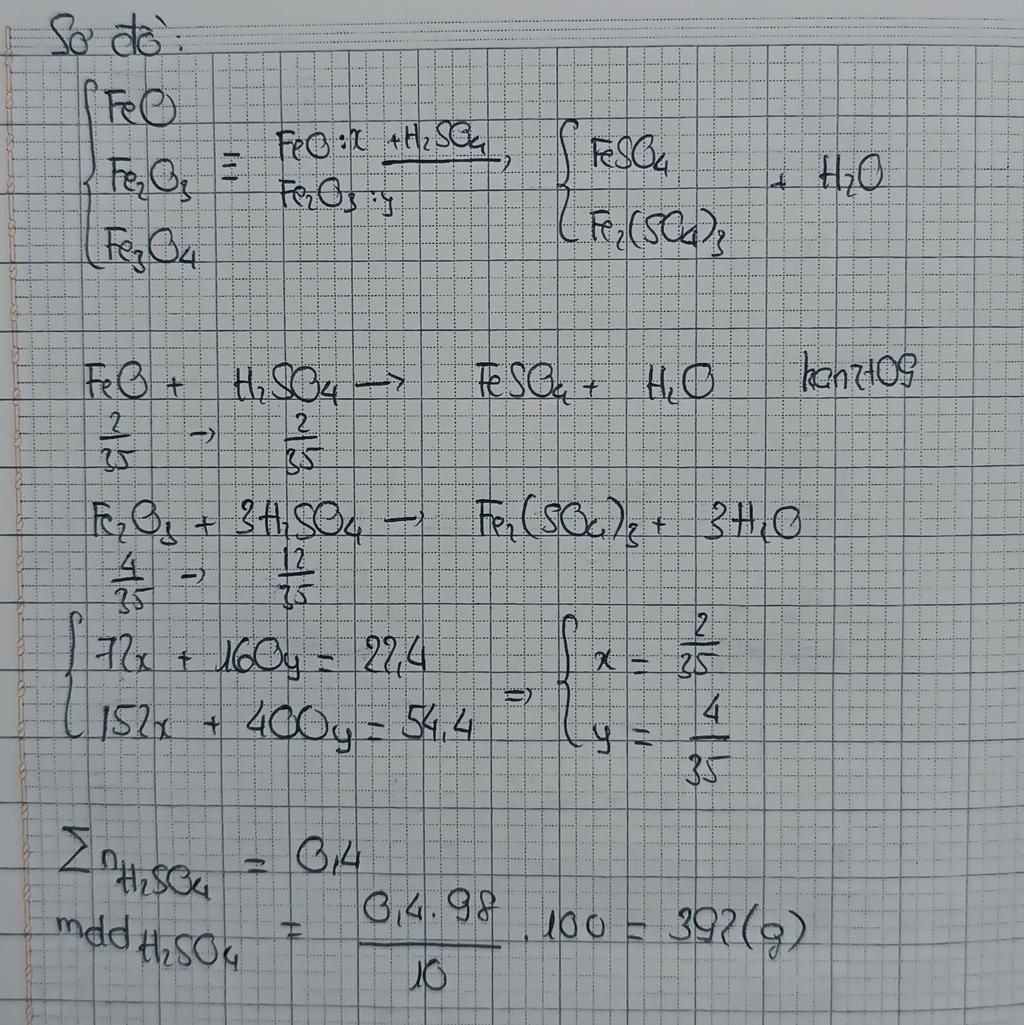 Sơ đồ:
{ FeO
Fe₂O₃
Fe₃O₄ ≡ FeO : x
Fe₂O₃ : y +H₂SO₄ → { FeSO₄
Fe₂(SO₄)₃ + H₂O
FeO + H₂SO₄ → FeSO₄ + H₂O
2/35 → 2/35
Fe₂O₃ + 3H₂SO₄ → Fe₂(SO₄)₃ + 3H₂O
4/35 → 12/35
{ 72x + 160y = 22,4
152x + 400y = 54,4 ⇒ { x = 2/35
y = 4/35
Σn H₂SO₄ = 0,4
mdd H₂SO₄ = 0,4.98/10 .100 = 392(g)